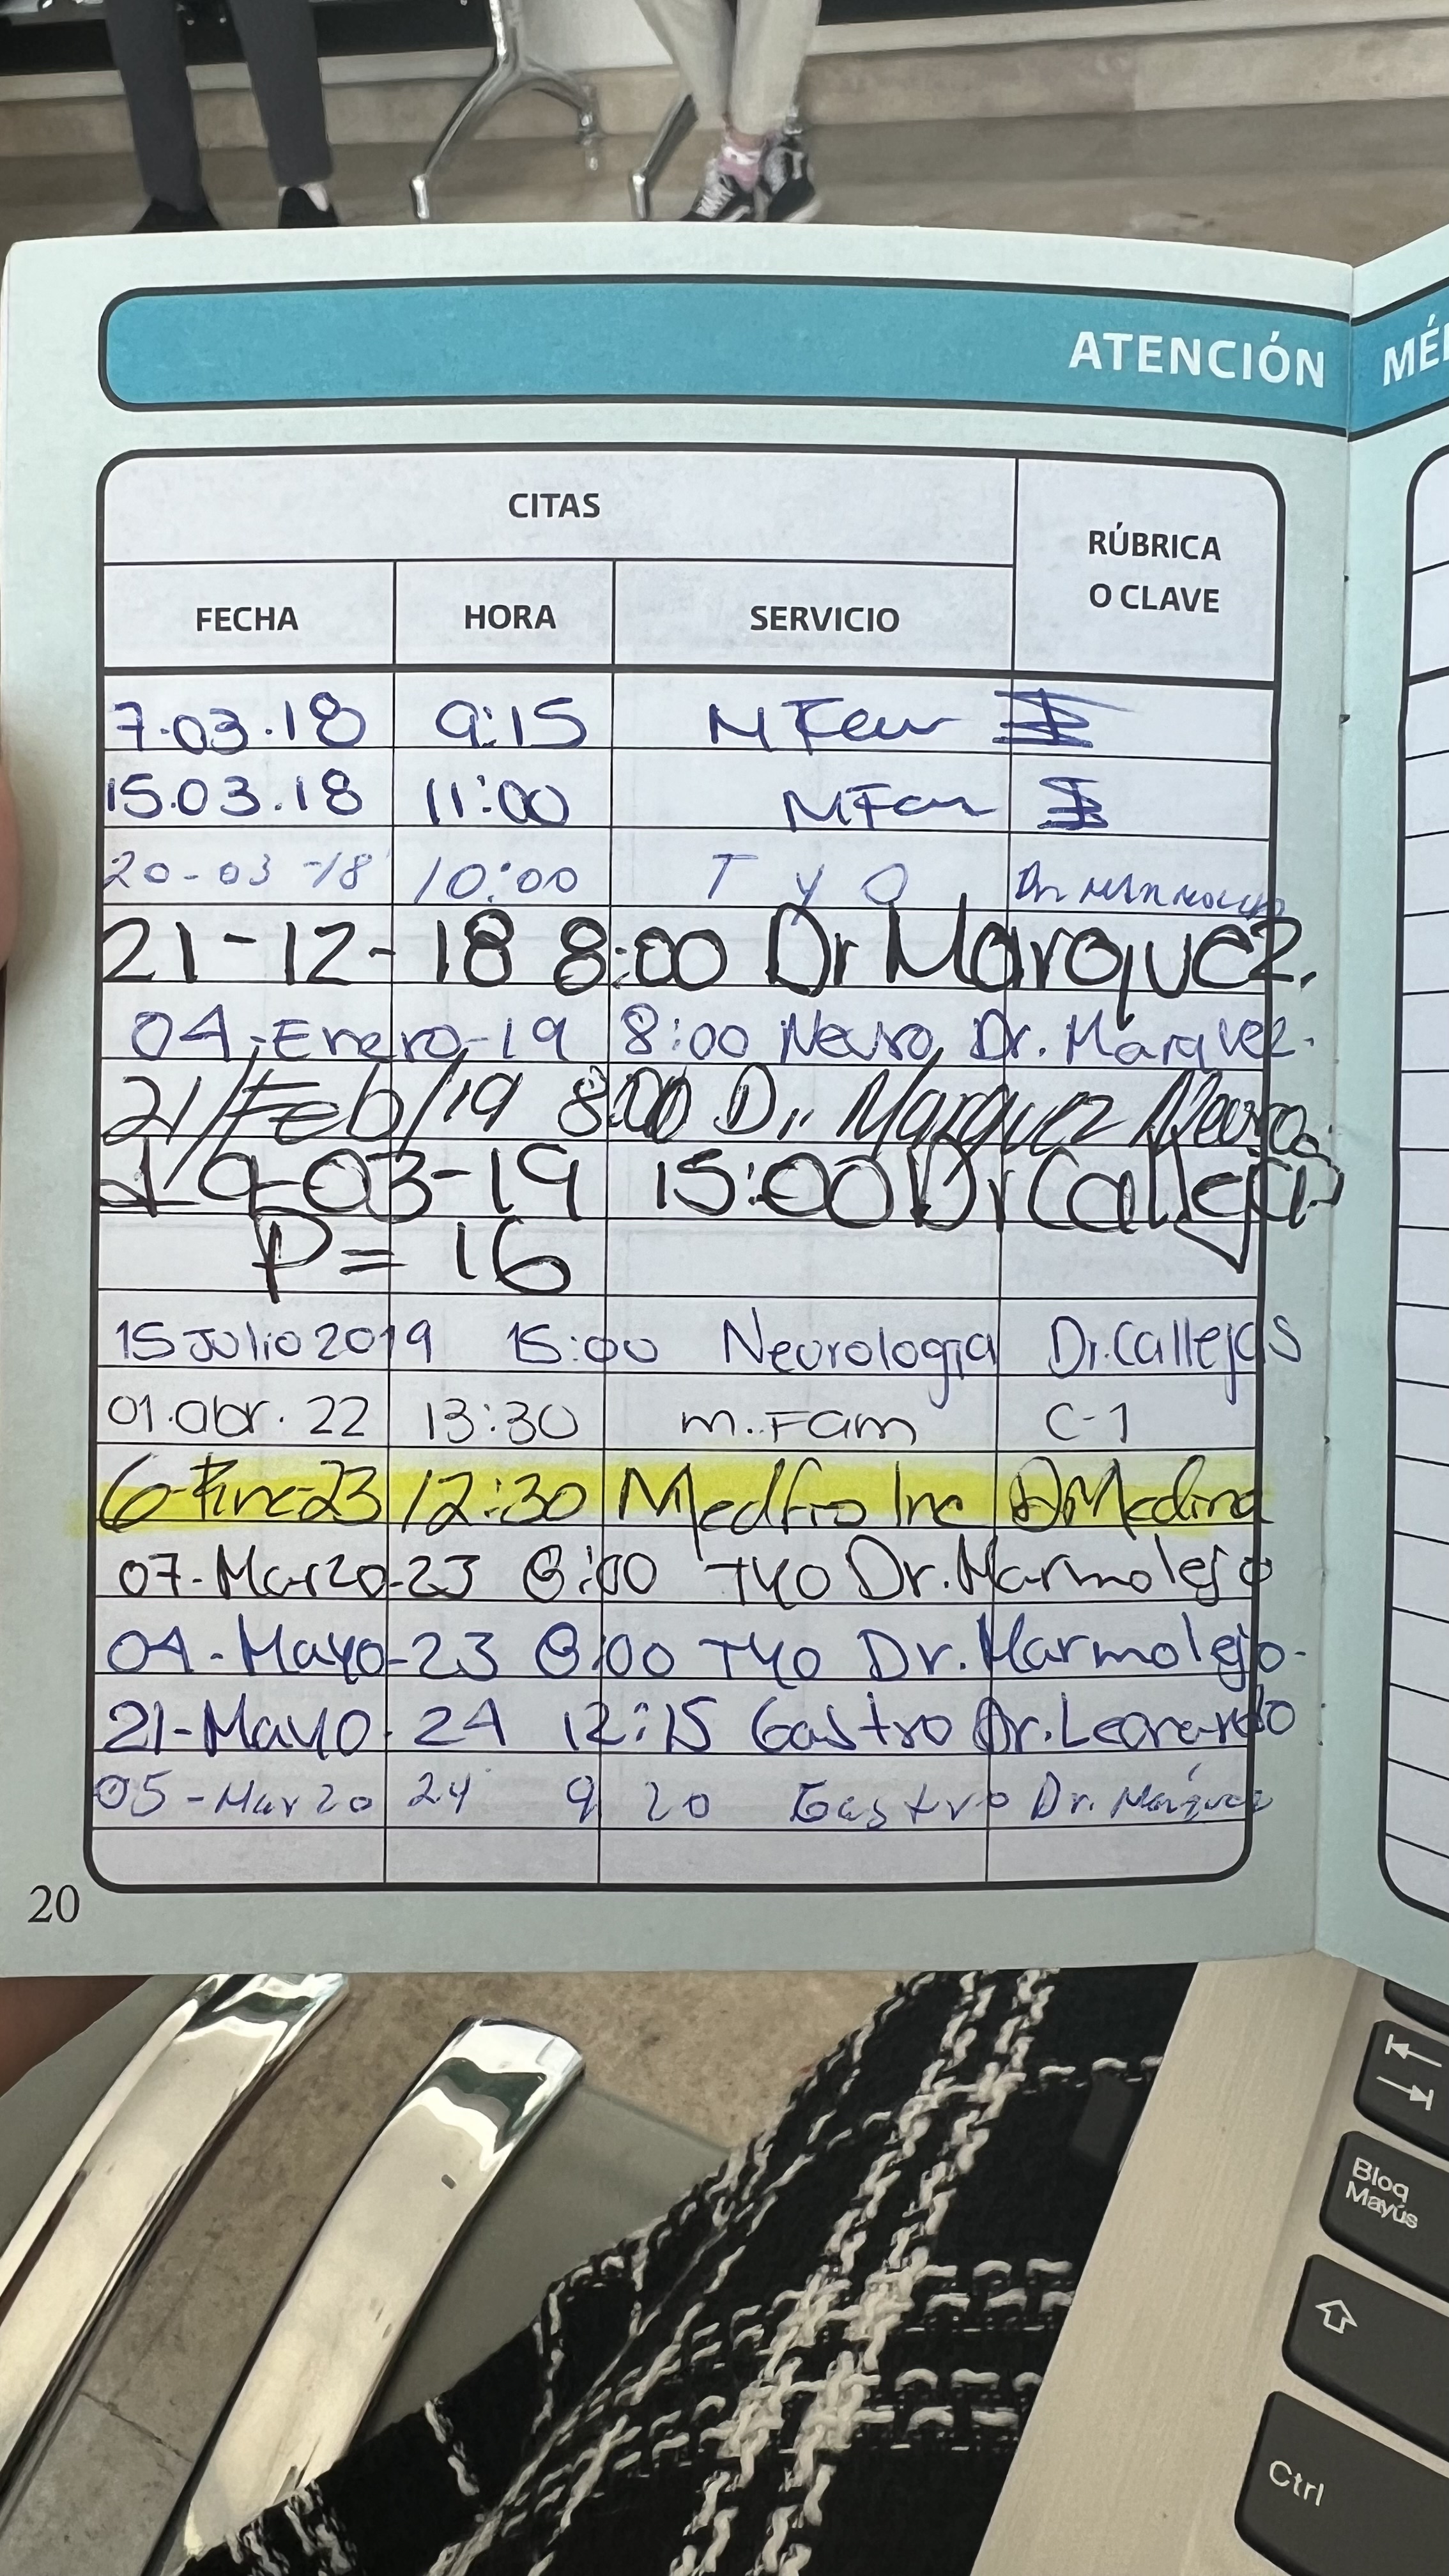 ATENCIÓN MÉ
CITAS
RÚBRICA O CLAVE
FECHA HORA SERVICIO
7.03.18 9:15 MFam
15.03.18 11:00 MFam
20-03-18 10:00 T y O Dr
21-12-18 8:00 Dr Marquez.
04-Enero-19 8:00 Neuro Dr. Marquez.
21/Feb/19 8:00 Dr. Marquez Neuro
19-03-19 15:00 Dr Callejas
P=16
15 Julio 2019 15:00 Neurologia Dr. Callejas
01.abr.22 13:30 m.Fam C-1
6-Ene-23 12:30 Med Dr Medina
07-Marzo-23 8:00 TYO Dr. Marmolejo
04-Mayo-23 8:00 TYO Dr. Marmolejo-
21-Mayo-24 12:15 Gastro Dr. Leonardo
05-Marzo 24 9 20 Gastro Dr. Márquez
20
Bloq Mayús
Ctrl